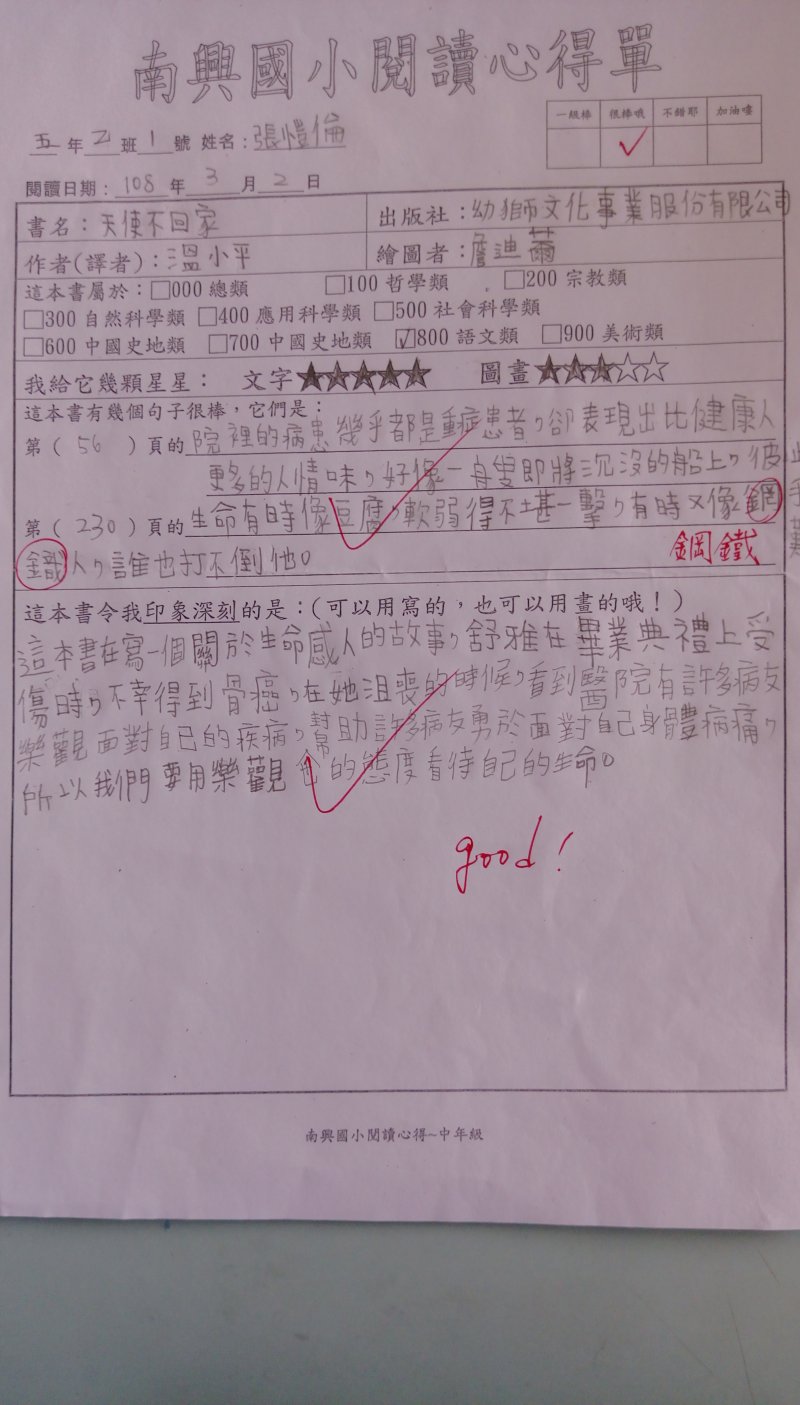 南興國小閱讀心得單
一級棒 很棒哦 不錯耶 加油嘍
五年乙班1號 姓名：張愷倫
閱讀日期：108年3月2日
書名：天使不回家 出版社：幼獅文化事業股份有限公司
作者(譯者)：溫小平 繪圖者：詹迪薾
這本書屬於：□000 總類 □100 哲學類 □200 宗教類
□300 自然科學類 □400 應用科學類 □500 社會科學類
□600 中國史地類 □700 中國史地類 ☑800 語文類 □900 美術類
我給它幾顆星星： 文字★★★★★ 圖畫★★★☆☆
這本書有幾個句子很棒，它們是：
第（56）頁的院裡的病患幾乎都是重症患者，卻表現出比健康人
更多的人情味，好像一身隻即將沉沒的船上，彼此
第（230）頁的生命有時像豆腐，軟弱得不堪一擊，有時又像鋼
鐵人，誰也打不倒他。
鋼鐵
這本書令我印象深刻的是：(可以用寫的，也可以用畫的哦！)
這本書在寫一個關於生命感人的故事，舒雅在畢業典禮上受
傷時，不幸得到骨癌，在她沮喪的時候，看到醫院有許多病友
樂觀面對自己的疾病，幫助許多病友勇於面對自己身體病痛，
所以我們要用樂觀的態度看待自己的生命。
good！
南興國小閱讀心得~中年級